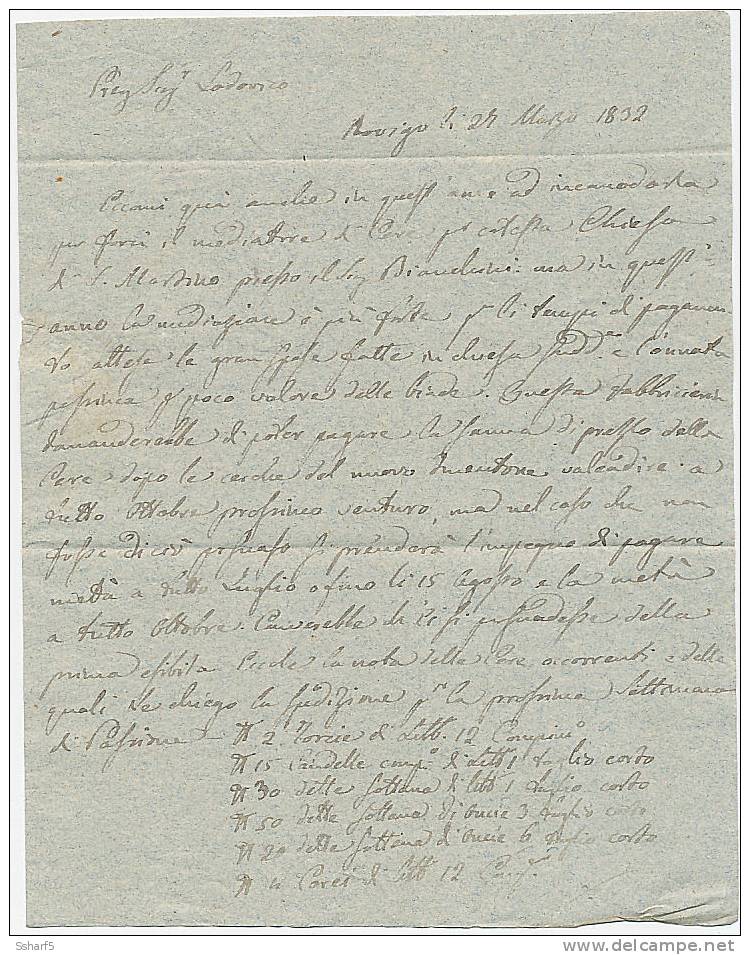 Preg Sig.r Lodovico
Rovigo li 27 Marzo 1832
Eccomi quà anche in quest' anno ad incomodarla
per farci il mediatore di Cere p cotesta Chiesa
di S. Martino presso il Sig Bianchini: ma in quest'
anno la mediazione è più forte p li tempi di pagamen
to attese le gran spese fatte in chiesa sudd.a e l'annata
passata p poco valore delle biade. Questa Fabbriceria
domanderebbe di poter pagare la somma di prezzo delle
Cere dopo le cerche del nuovo frmentone valeadire a
tutto Ottobre prossimo venturo, ma nel caso che non
fosse di ciò persuaso si prenderà l'impegno di pagare
metà a tutto Luglio o fino li 15 Agosto e la metà
a tutto Ottobre. che si psuadesse della
prima esibita. Eccole la nota delle Cere occorrenti e delle
quali Le chiego la spedizione p la prossima Settimana
di Passione - N 2 Torcie di Libb. 12
N 15 Candelle comp.e di Libb 1 taglio corto
N 30 dette sottana di Libb 1 taglio corto
N 50 dette sottana di oncie 3 taglio corto
N 20 dette sottana di oncie 6 taglio corto
N 4 Cerei di Libb 12
Ssharf5
www.delcampe.net